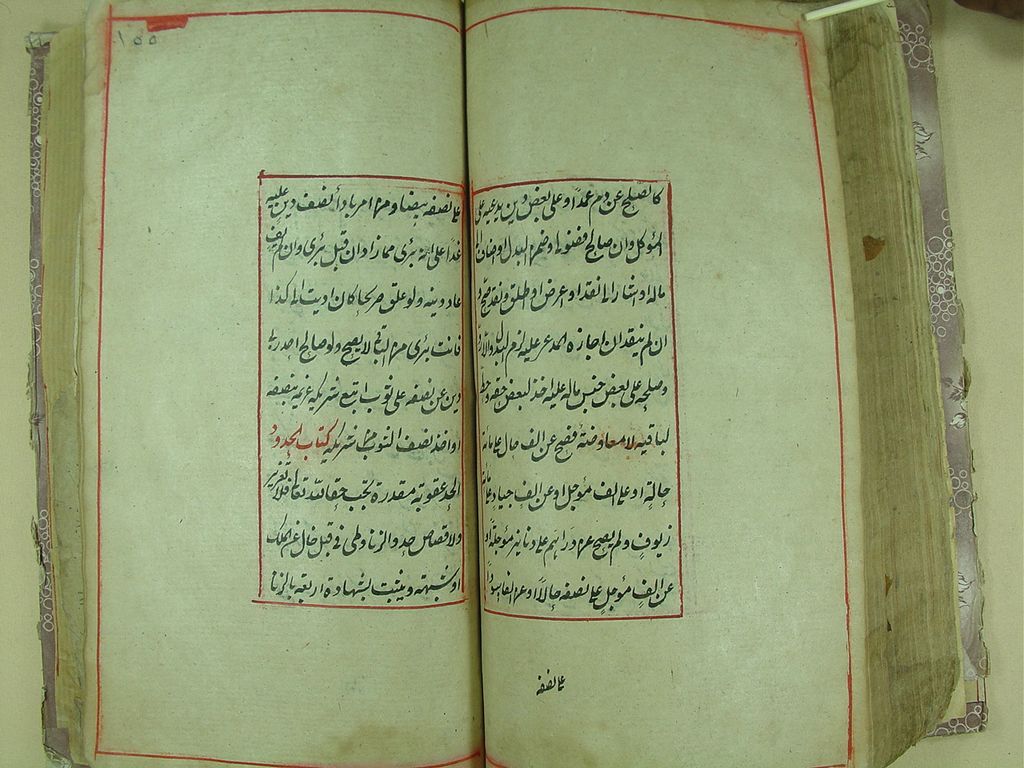 كالصلح عن دم عمد او على بعض دين يدعيه على
الموكل وان صالح فضولى وضمن البدل او اضاف الى
ماله او اشار الى نقد او عرض او اطلق ونقد صح و
ان لم ينقد ان اجازه المدعى عليه لزم البدل والا رد
وصلحه على بعض جنس ماله عليه اخذ لبعض حقه وحط
لباقيه لا معاوضة فصح عن الف حال على مائة
حالة او على الف مؤجل او عن الف جياد على مائة
زيوف ولم يصح عن دراهم على دنانير مؤجلة او
عن الف مؤجل على نصفه حالا او عن الف سودا
على نصفه
١٥٥
على نصفه بيضا ومن امر باداء نصف دين عليه
غدا على انه برئ مما زاد ان قبل برئ وان لم يف
عاد دينه ولو علق صريحا كان اديت الى كذا
فانت برئ من الباقى لا يصح ولو صالح احد ربى
دين عن نصفه على ثوب اتبع شريكه غريمه بنصفه
او اخذ نصف الثوب من شريكه كتاب الحدود
الحد عقوبة مقدرة يجب حقا لله تعالى فلا تعزير
ولا قصاص حد والزنا وطى فى قبل خال عن الملك
او شبهته ويثبت بشهادة اربعة بالزنا